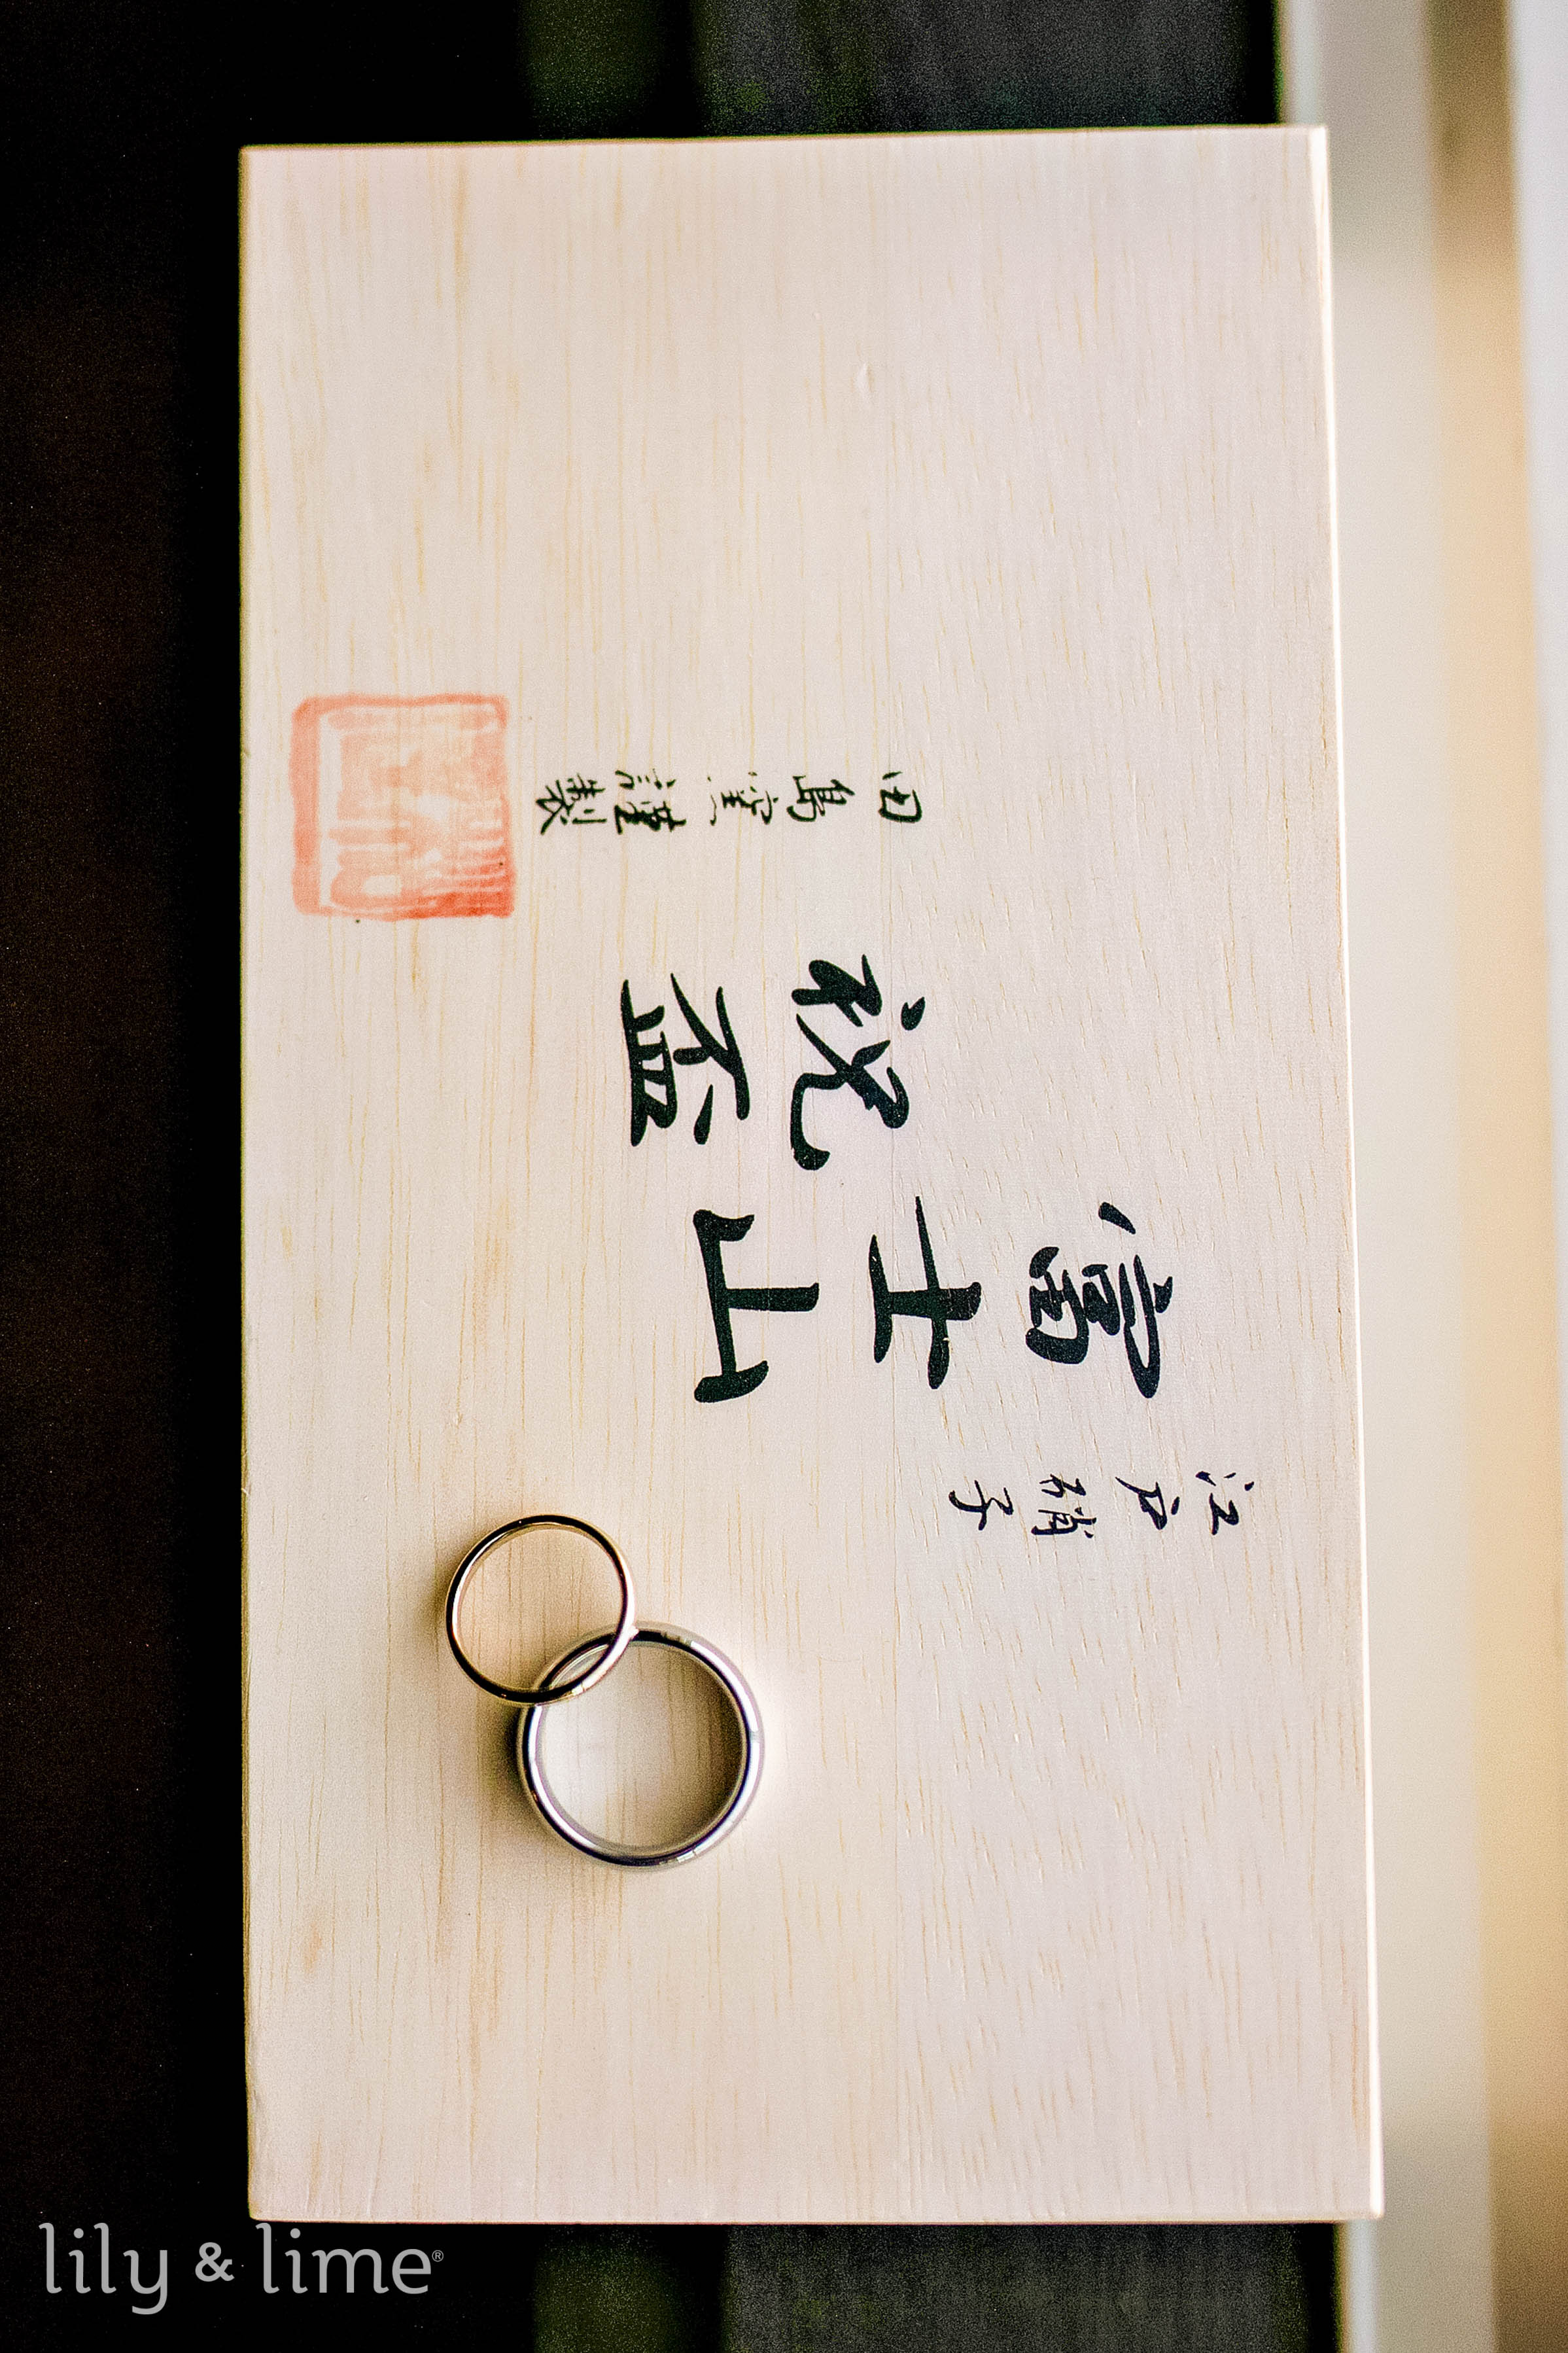 江戸硝子
富士山
祝盃
田島窯謹製
lily & lime®